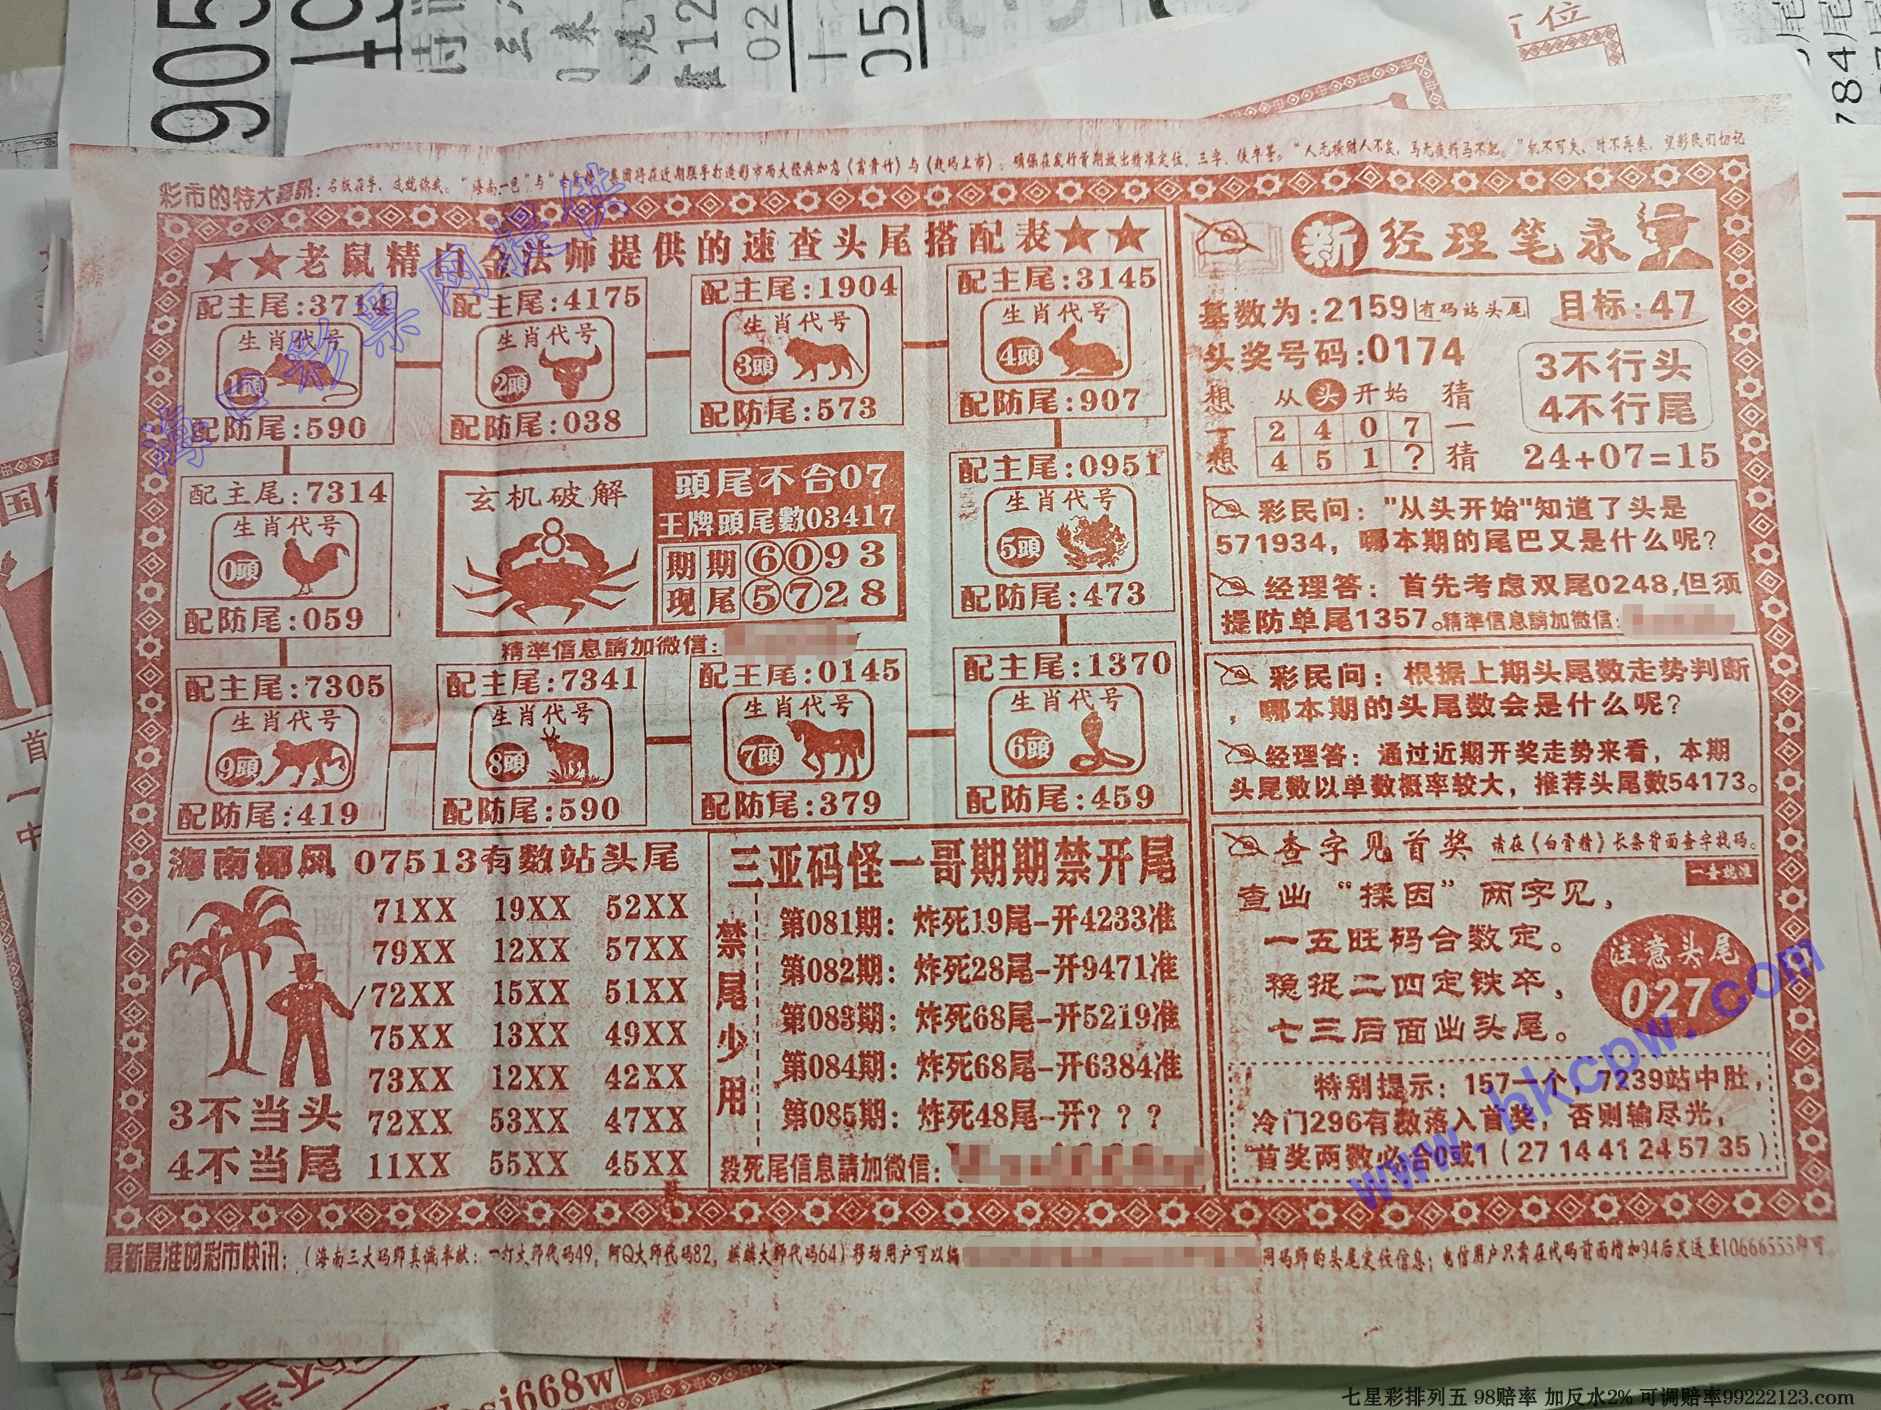 彩市的特大喜讯：
★★老鼠精白金法师提供的速查头尾搭配表★★
配主尾:3714
生肖代号
1頭
配防尾:590
配主尾:4175
生肖代号
2頭
配防尾:038
配主尾:1904
生肖代号
3頭
配防尾:573
配主尾:3145
生肖代号
4頭
配防尾:907
配主尾:7314
生肖代号
0頭
配防尾:059
玄机破解
8
頭尾不合07
王牌頭尾數03417
期期6093
现尾5728
精準信息請加微信:
配主尾:0951
生肖代号
5頭
配防尾:473
配主尾:7305
生肖代号
9頭
配防尾:419
配主尾:7341
生肖代号
8頭
配防尾:590
配主尾:0145
生肖代号
7頭
配防尾:379
配主尾:1370
生肖代号
6頭
配防尾:459
海南椰风 07513有数站头尾
71XX 19XX 52XX
79XX 12XX 57XX
72XX 15XX 51XX
75XX 13XX 49XX
73XX 12XX 42XX
72XX 53XX 47XX
11XX 55XX 45XX
3不当头
4不当尾
三亚码怪一哥期期禁开尾
禁尾少用
第081期：炸死19尾-开4233准
第082期：炸死28尾-开9471准
第083期：炸死68尾-开5219准
第084期：炸死68尾-开6384准
第085期：炸死48尾-开？？？
殺死尾信息請加微信:
新 经理笔录
基数为:2159 有码站头尾 目标:47
头奖号码:0174
3不行头
4不行尾
想一想
从头开始
2 4 0 7
4 5 1 ?
猜一猜
24+07=15
彩民问："从头开始"知道了头是
571934，哪本期的尾巴又是什么呢？
经理答：首先考虑双尾0248,但须
提防单尾1357。精準信息請加微信:
彩民问：根据上期头尾数走势判断
，哪本期的头尾数会是什么呢？
经理答：通过近期开奖走势来看，本期
头尾数以单数概率较大，推荐头尾数54173。
查字见首奖 请在《白骨精》长条背面查字找码。
一查就准
查出“揉因”两字见，
一五旺码合数定。
稳捉二四定铁卒，
七三后面出头尾。
注意头尾
027
特别提示：157一个，7239站中肚，
冷门296有数落入首奖，否则输尽光，
首奖两数必合0或1（27 14 41 24 57 35）
最新最准的彩市快讯：（海南三大码师真诚奉献：一打大师代码49，阿Q大师代码82，麒麟大师代码64）移动用户可以编
同码师的头尾定位信息；电信用户只需在代码前面增加94后发送至10666555即可
海口彩票网提供
www.hkcpw.com
七星彩排列五 98赔率 加反水2% 可调赔率99222123.com